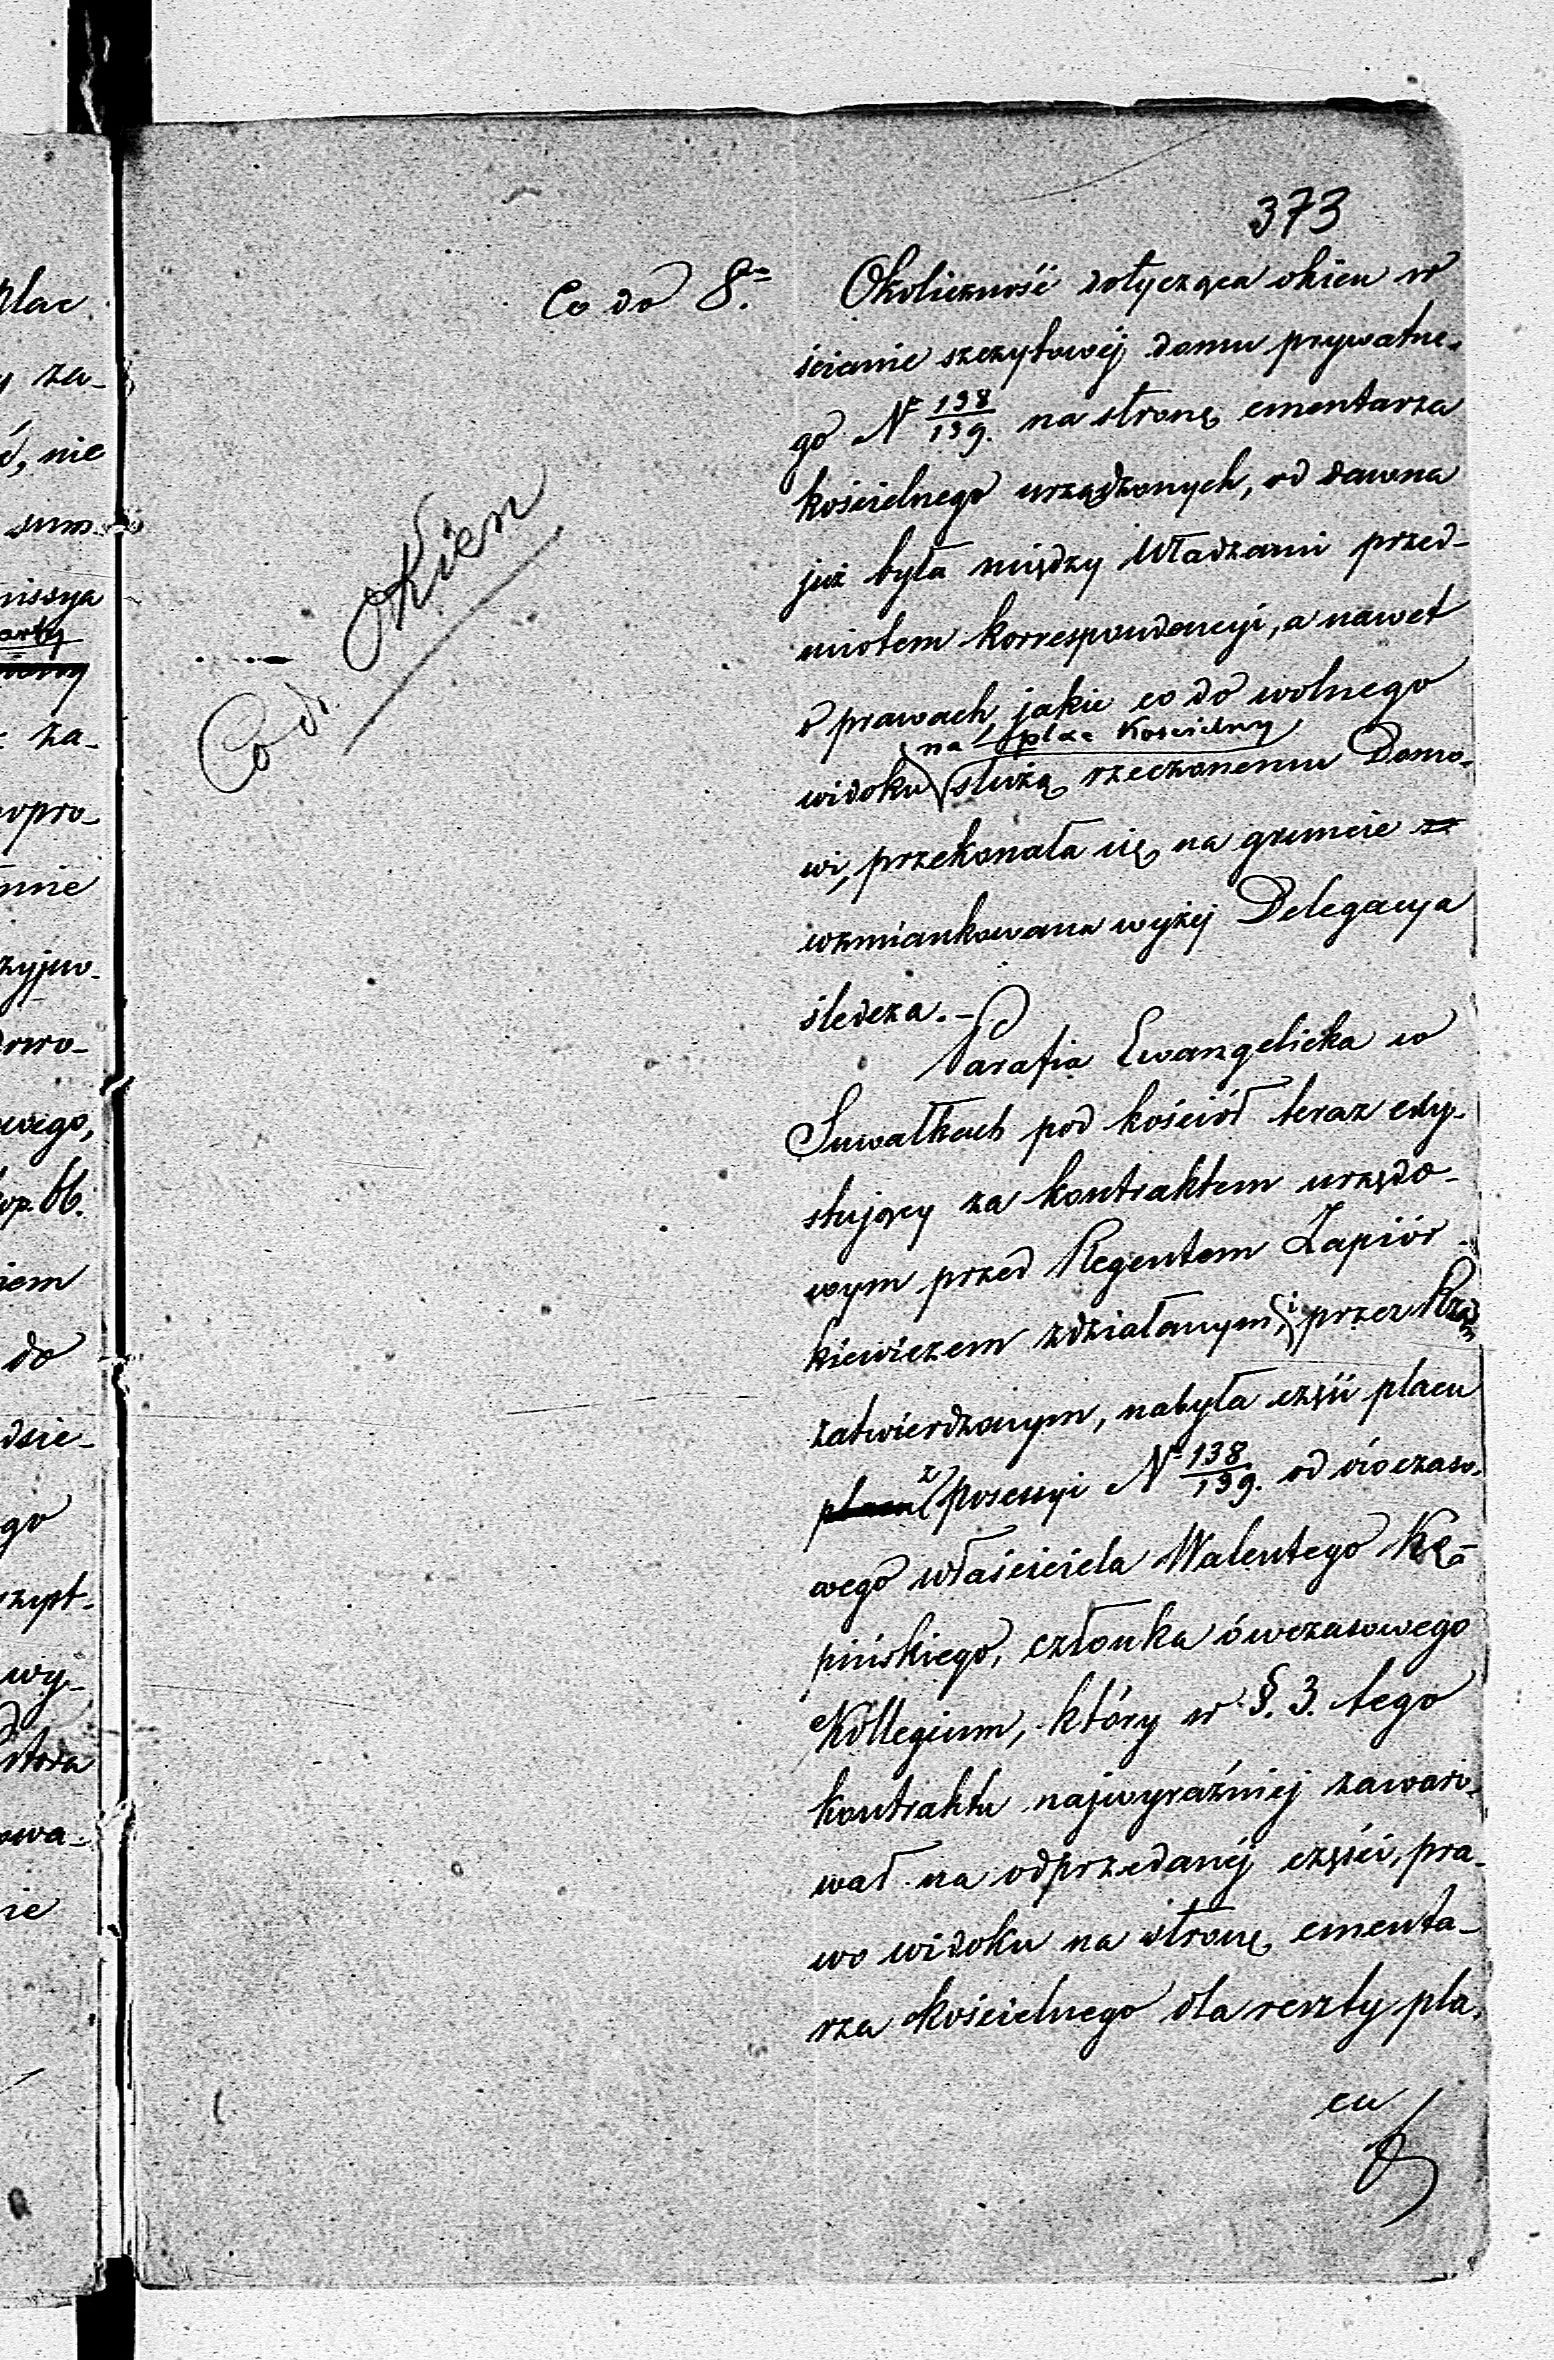 373
Co do 8.
Okoliczność dotycząca okien w
ścianie szczytowéj domu prywatne-
go N 138/139. na stronę cmentarza
kościelnego urządzonych, od dawna
już była między Władzami przed-
miotem korrespondencyi, a nawet
o prawach, jakie co do wolnego
na plac Kościelny
widoku służą rzeczonemu Domo-
wi, przekonała się na gruncie
wzmiankowana wyżej Delegacya
śledcza. -
Parafia Ewangelicka w
Suwałkach pod kościół teraz exy-
stujący za kontraktem urzędo-
wym przed Regentem Zapiór-
kiewiczem zdziałanym, i przez Rząd
zatwierdzonym, nabyła część placu
placu z posessyi N 138/139. od ówczaso-
wego właściciela Walentego Kę-
pińskiego, członka ówczasowego
Kollegium, który w §. 3. tego
kontraktu najwyraźniej zawaro-
wał na odprzedanéj części, pra-
wo widoku na stronę cmenta-
rza kościelnego dla reszty pla-
cu
Co do Okien
plac
za-
nie
sum-
missya
za-
do
dsie-
go
wy-
owa-
nie